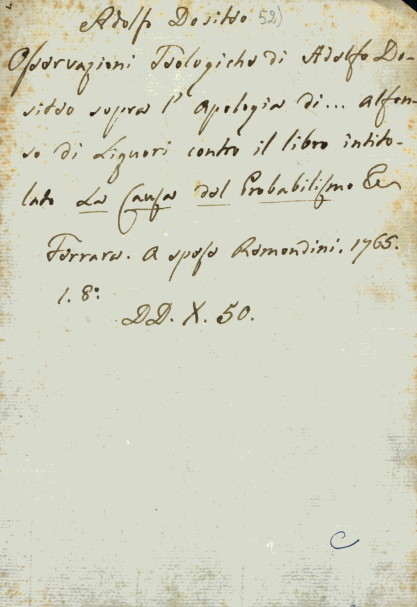 Adolfo Dositeo 52)
Osservazioni Teologiche di Adolfo Do-
siteo sopra l' Apologia di... Alfon-
so di Liguori contro il libro intito-
lato La Causa del Probabilismo Ec
Ferrara. A spese Remondini. 1765.
1. 8°.
DD. X. 50.
C